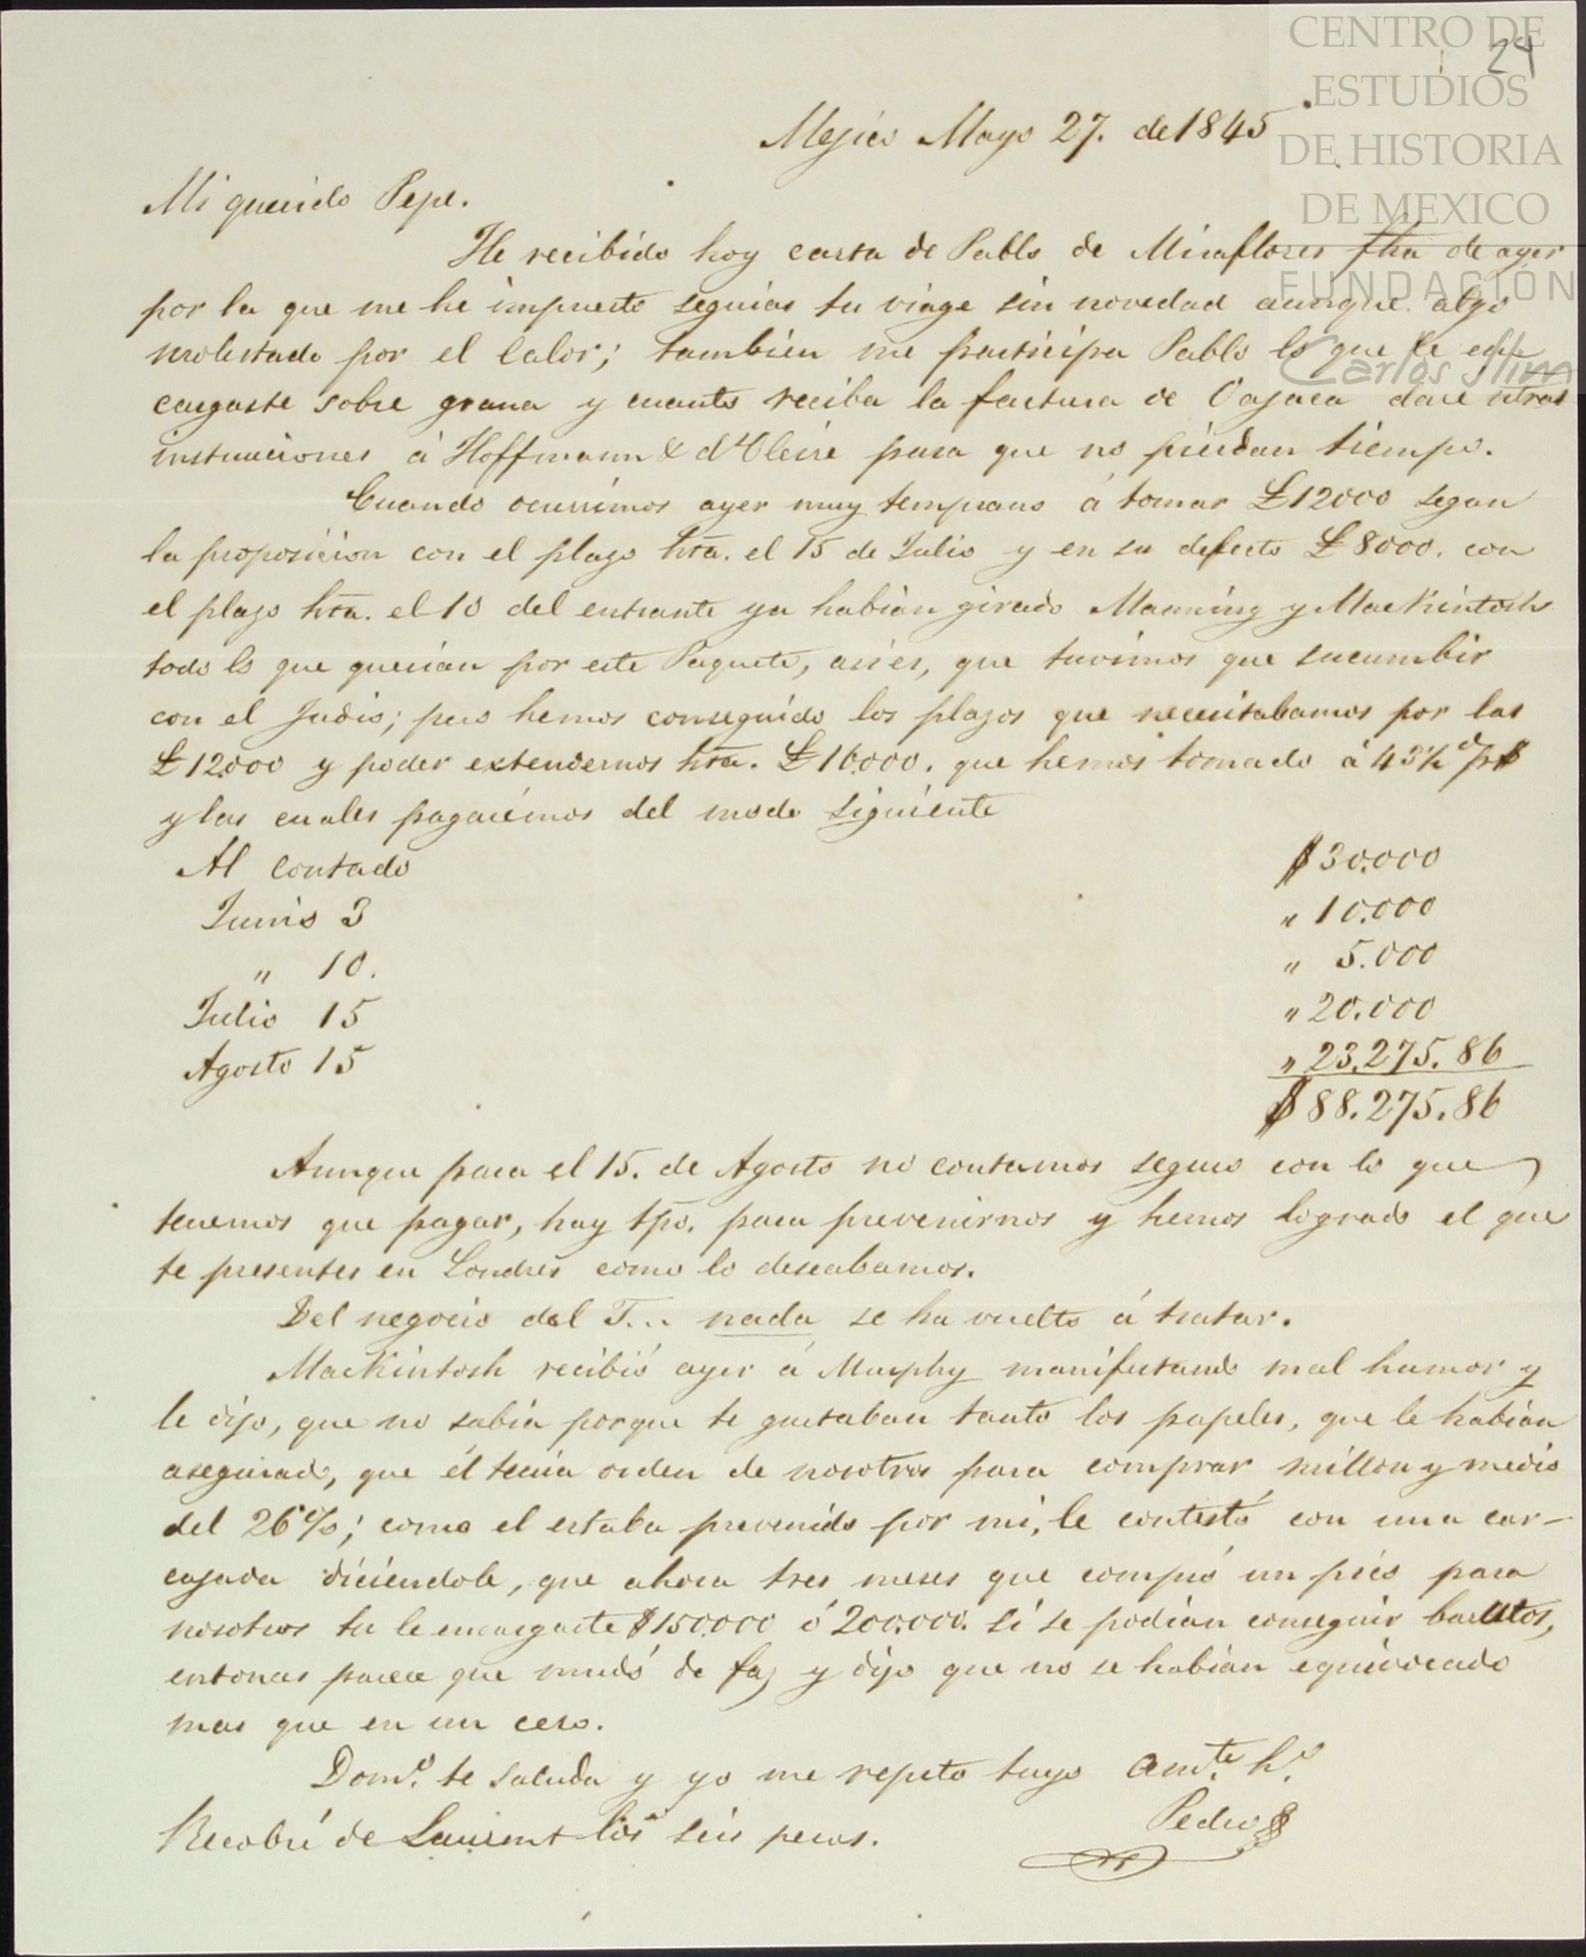 CENTRO DE
ESTUDIOS
DE HISTORIA
DE MEXICO
FUNDACIÓN
Carlos Slim
24
Mejico Mayo 27. de 1845
Mi querido Pepe.
He recibido hoy carta de Pablo de Miraflores fha de ayer
por la que me he impuesto seguias tu viage sin novedad aunque algo
molestado por el calor; tambien me participa Pablo lo que le en-
cargaste sobre grana y cuanto reciba la factura de Oajaca daré otras
instrucciones á Hoffmann & d'Oleire para que no pierdan tiempo.
Cuando ocurrimos ayer muy temprano á tomar £12000 segun
la proposicion con el plazo hta. el 15 de Julio y en su defecto £8000. con
el plazo hta. el 10 del entrante ya habian girado Manning y MacKintosh
todo lo que querian por este Paquete, asi es, que tuvimos que sucumbir
con el Judio; pero hemos conseguido los plazos que necesitabamos por las
£12000 y poder extendernos hta. £16.000. que hemos tomado á 43½ d/p$
y las cuales pagarémos del modo siguiente
Al contado $30.000
Junio 3 " 10.000
" 10. " 5.000
Julio 15 " 20.000
Agosto 15 " 23.275.86
$88.275.86
Aunque para el 15. de Agosto no contamos seguro con lo que
tenemos que pagar, hay tpo. para prevenirnos y hemos logrado el que
te presentes en Londres como lo deseabamos.
Del negocio del T... nada se ha vuelto á tratar.
MacKintosh recibió ayer á Murphy manifestando mal humor y
le dijo, que no sabia porque te gustaban tanto los papeles, que le habian
asegurado, que él tenia orden de nosotros para comprar millon y medio
del 26%; como el estaba prevenido por mi, le contestó con una car-
cajada diciendole, que ahora tres meses que compró un pico para
nosotros tu le encargaste $150.000 ó 200.000. si se podian conseguir baratos,
entonces parece que mudó de faz y dijo que no se habian equivocado
mas que en un cero.
Domo. te saluda y yo me repito tuyo amte. ho.
Pedro
Recobré de Laurent los seis pesos.